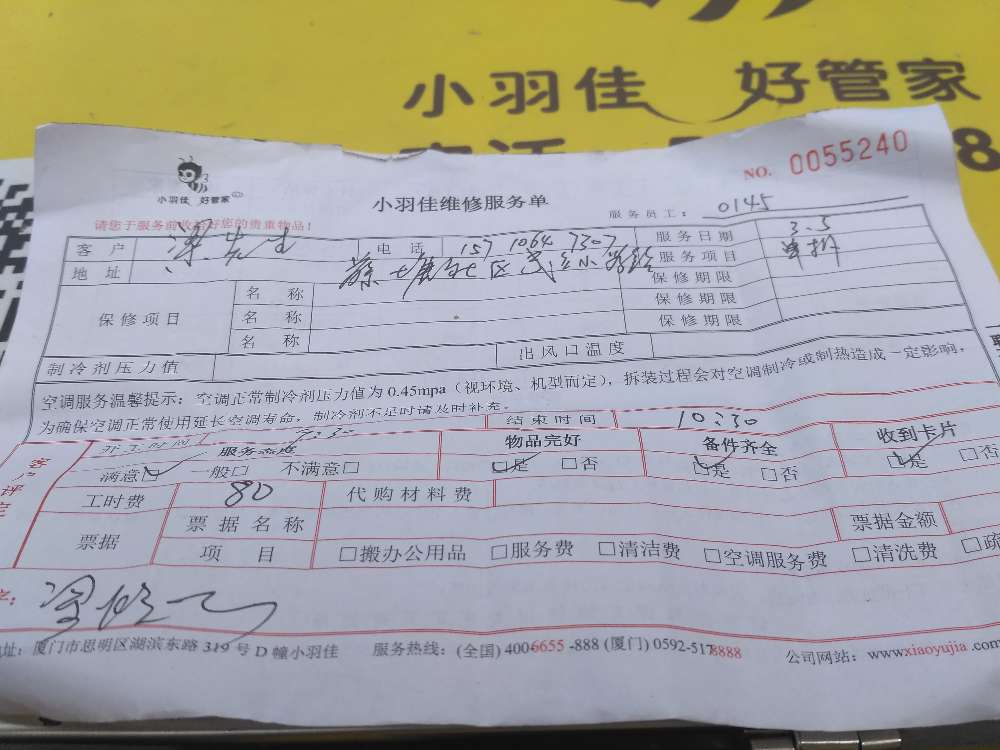 小羽佳 好管家
8
NO. 0055240
小羽佳 好管家
小羽佳维修服务单
服务员工: 0145
请您于服务前收拾好您的贵重物品!
客户 梁先生 电话 157 1064 7307 服务日期 3.5
地址 社区 服务项目 单拆
保修项目 名称 保修期限
名称 保修期限
名称 保修期限
制冷剂压力值 出风口温度
空调服务温馨提示: 空调正常制冷剂压力值为 0.45mpa (视环境、机型而定), 拆装过程会对空调制冷或制热造成一定影响,
为确保空调正常使用延长空调寿命, 制冷剂不足时请及时补充。
开工时间 9:30 结束时间 10:30
客户评定
服务态度 物品完好 备件齐全 收到卡片
满意☑ 一般□ 不满意□ ☑是 □否 ☑是 □否 ☑是 □否
工时费 80 代购材料费
票据 票据名称 票据金额
项目 □搬办公用品 □服务费 □清洁费 □空调服务费 □清洗费 □疏
地址: 厦门市思明区湖滨东路 319 号 D 幢小羽佳 服务热线: (全国) 4006655-888 (厦门) 0592-5178888 公司网站: www.xiaoyujia.com